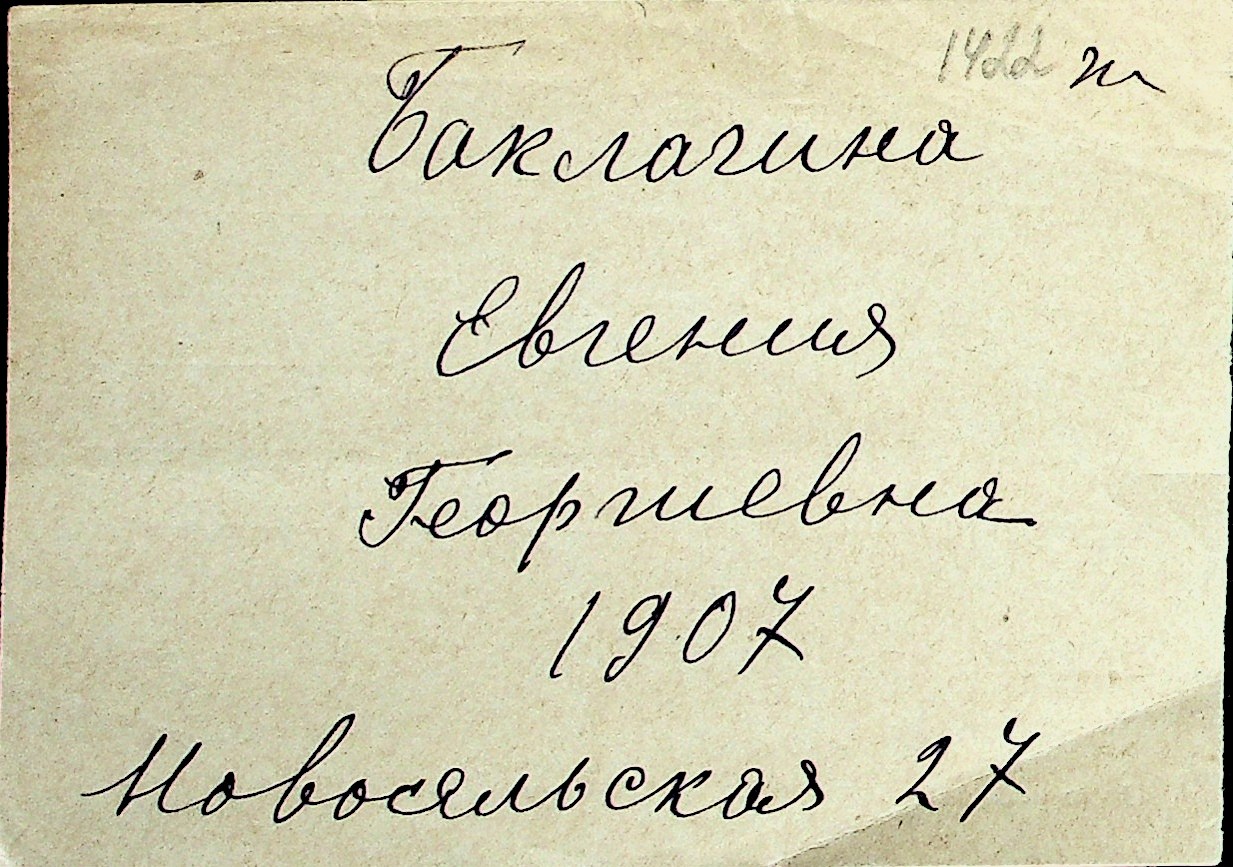 1422 н
Баклагина
Евгения
Георгиевна
1907
Новосельская 27